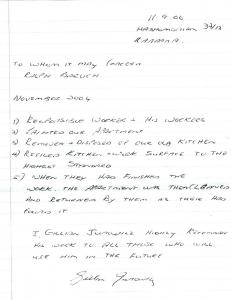 11.9.06
37/12
RAANANA.
TO WHOM IT MAY CONCERN
RALPH BARUCH
NOVEMBER 2004
1) RESPONSIBLE WORKER + HIS WORKERS
2) PAINTED OUR APARTMENT
3) REMOVED + DISPOSED OF OUR OLD KITCHEN
4) RETILED KITCHEN + WORK SURFACE TO THE
HIGHEST STANDARD
5) WHEN THEY HAD FINISHED THE
WORK THE APARTMENT WAS THEN CLEANED
AND RETURNED BY THEM AS THEY HAD
FOUND IT
I GILLIAN HIGHLY RECOMMEND
HIS WORK TO ALL THOSE WHO WILL
USE HIM IN THE FUTURE